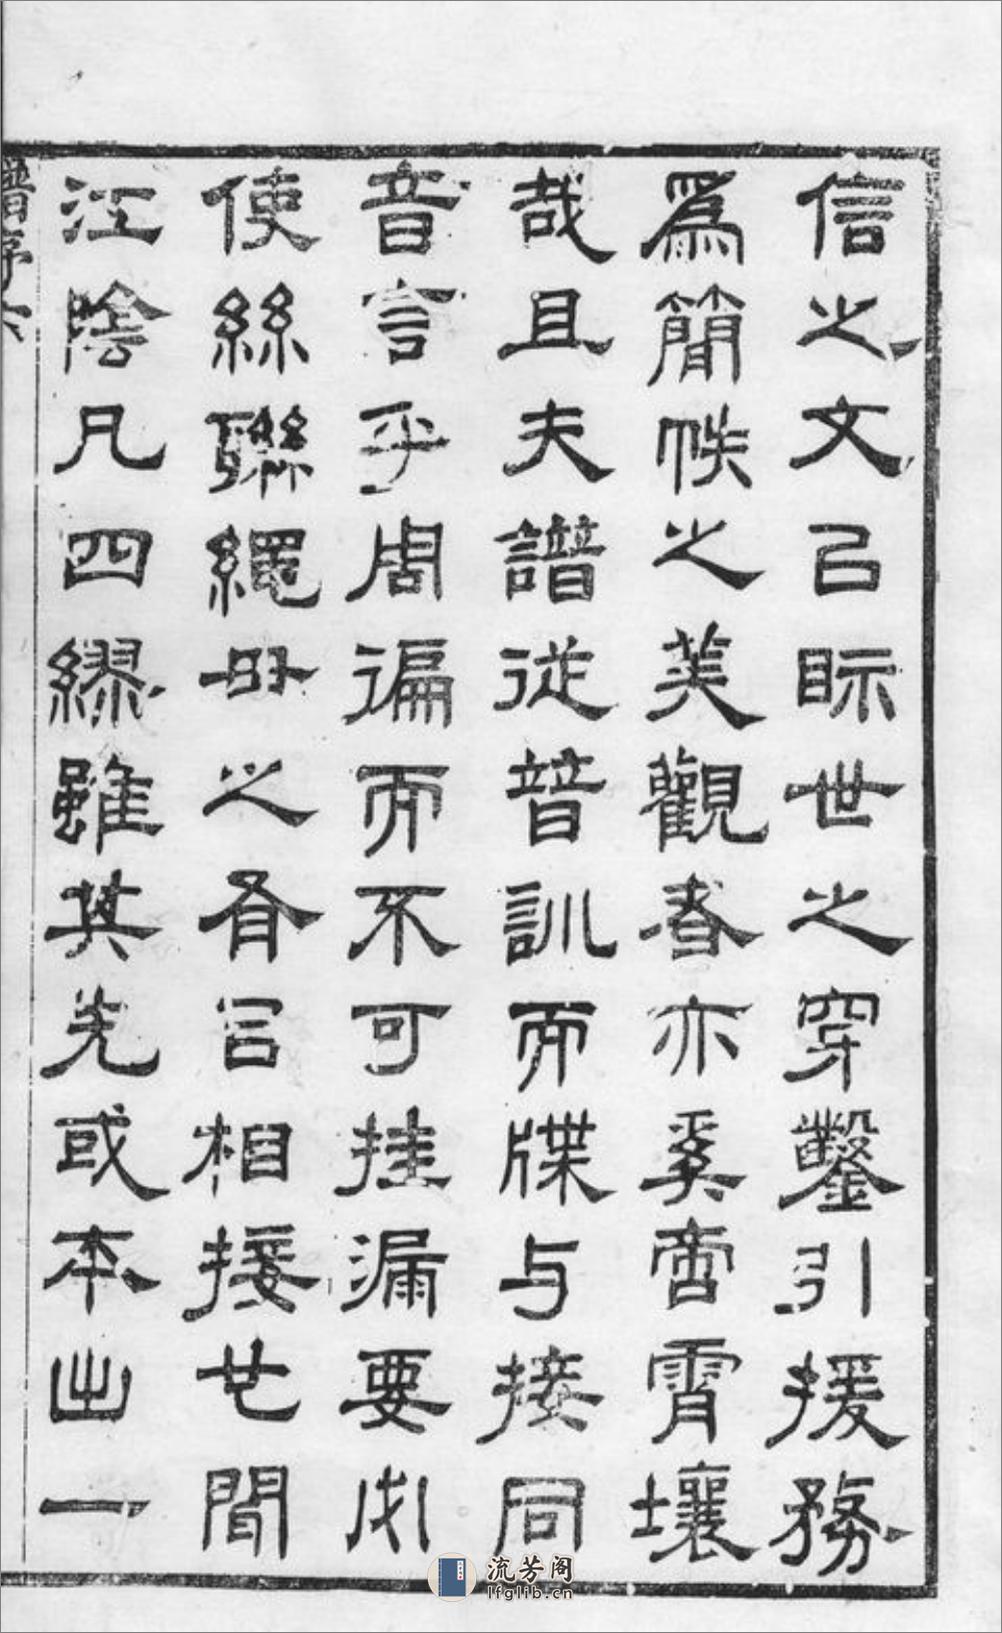 信之文已眎世之穿鑿引援務
爲簡帙之美觀者亦奚啻霄壤
哉且夫譜從普訓而牒与接同
音言乎周徧而不可挂漏要必
使絲聯繩毌之有㠯相接也閒
江陰凡四繆雖其先或本出一
譜序六
流芳阁
lfglib.cn